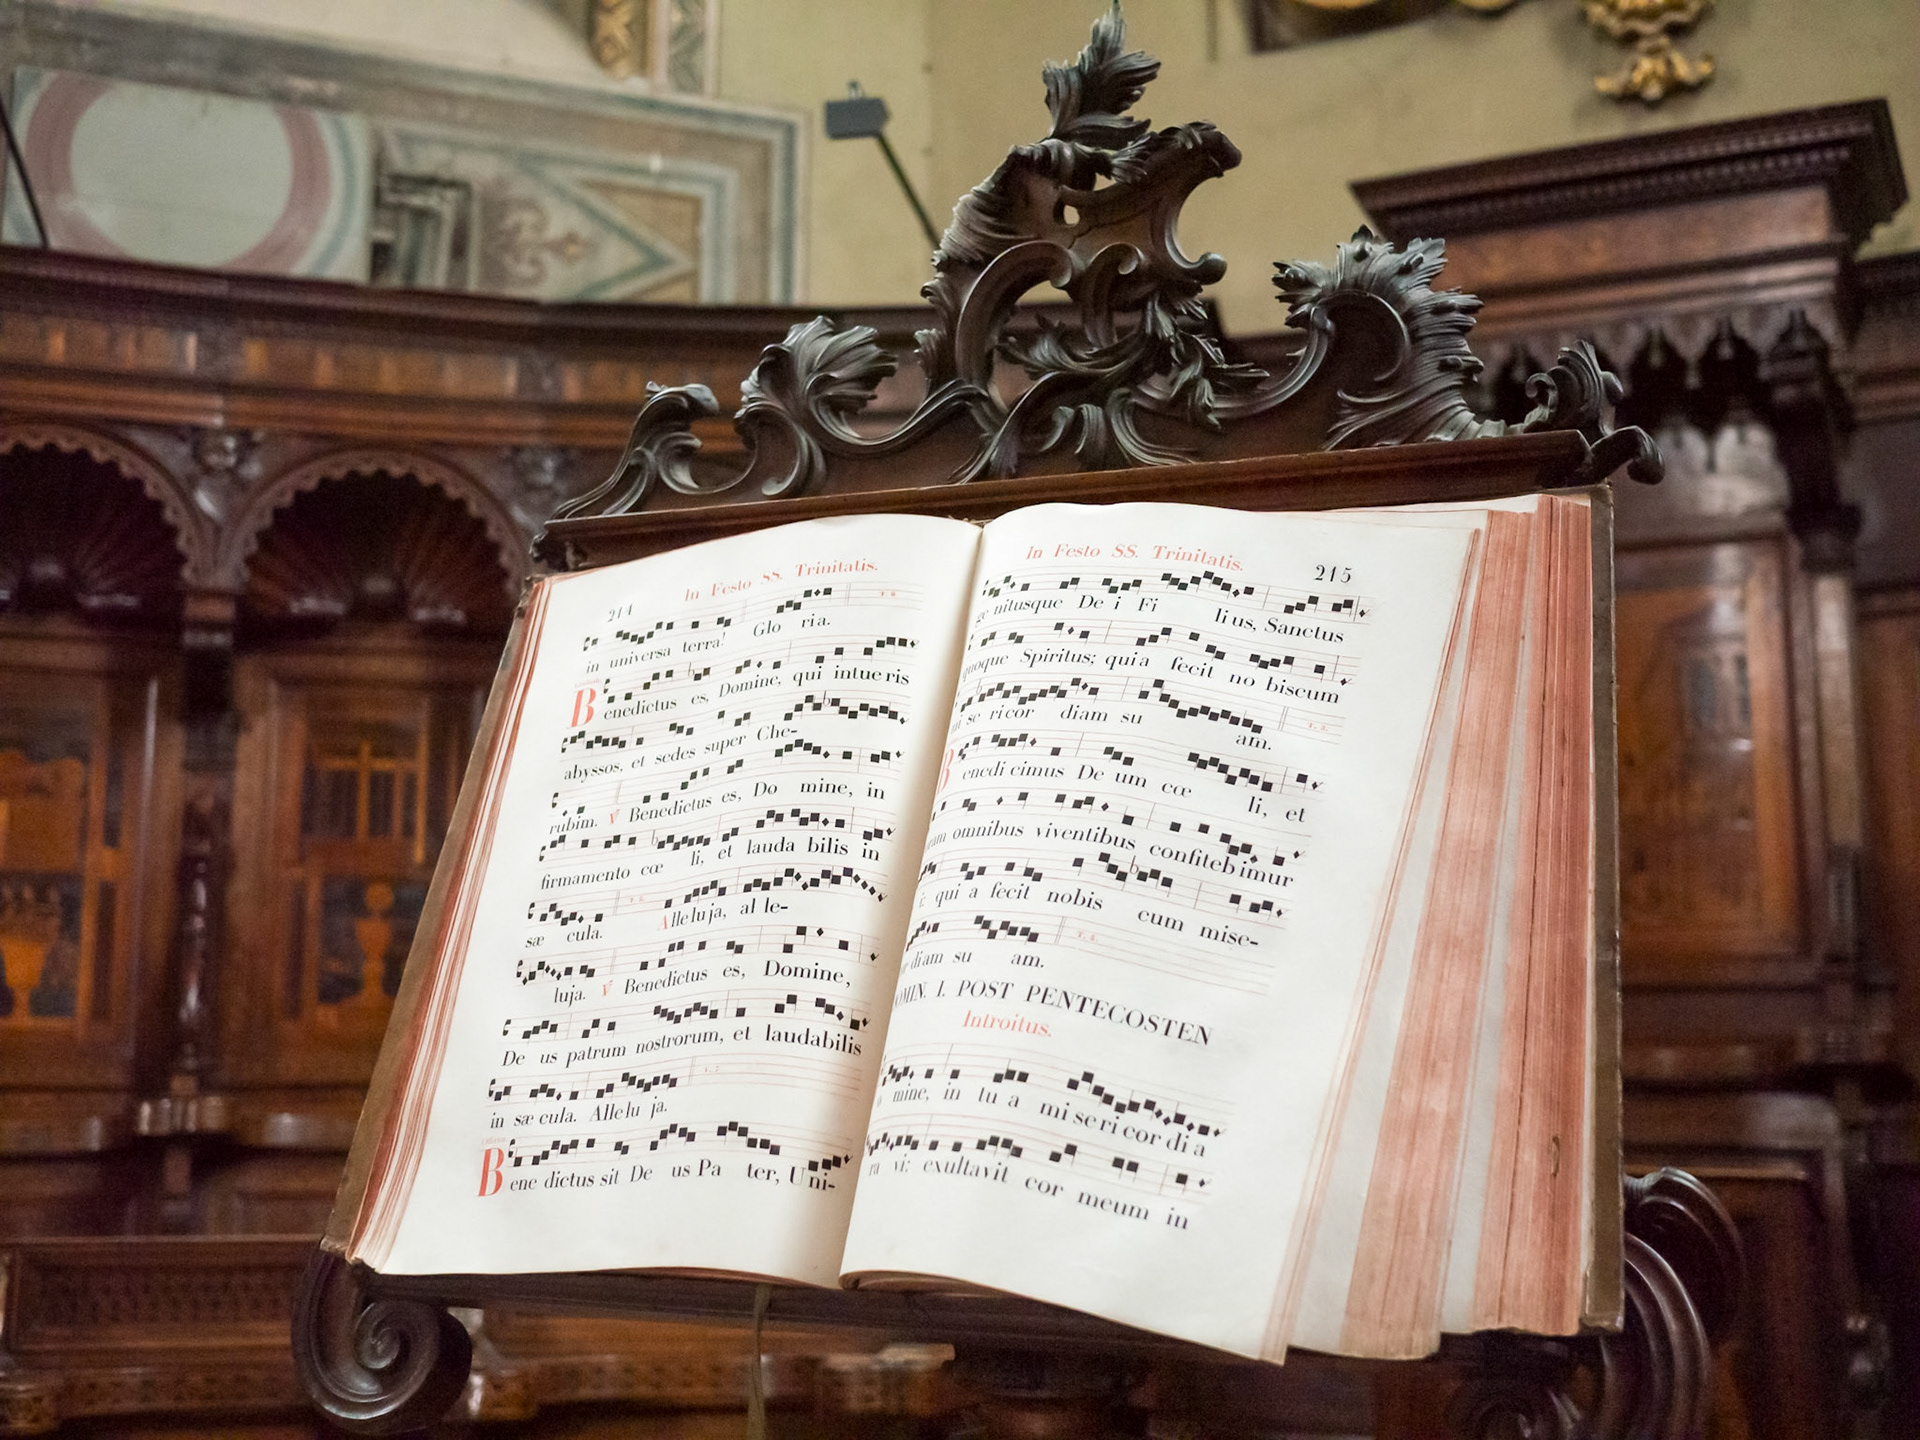 214
In Festo SS. Trinitatis.
in universa terra! Gloria.
Benedictus es, Domine, qui intueris
abyssos, et sedes super Che-
rubim. ℣ Benedictus es, Domine, in
firmamento cœli, et laudabilis in
sæcula. Alleluja, alle-
luja. ℣ Benedictus es, Domine,
Deus patrum nostrorum, et laudabilis
in sæcula. Alleluja.
Benedictus sit Deus Pater, Uni-
In Festo SS. Trinitatis.
215
nitusque Dei Filius, Sanctus
quoque Spiritus; quia fecit nobiscum
misericordiam suam.
Benedicimus Deum cœli, et
omnibus viventibus confitebimur
qui a fecit nobis cum mise-
diam suam.
OMIN. I. POST PENTECOSTEN
Introitus.
mine, in tua misericordia
vi: exultavit cor meum in